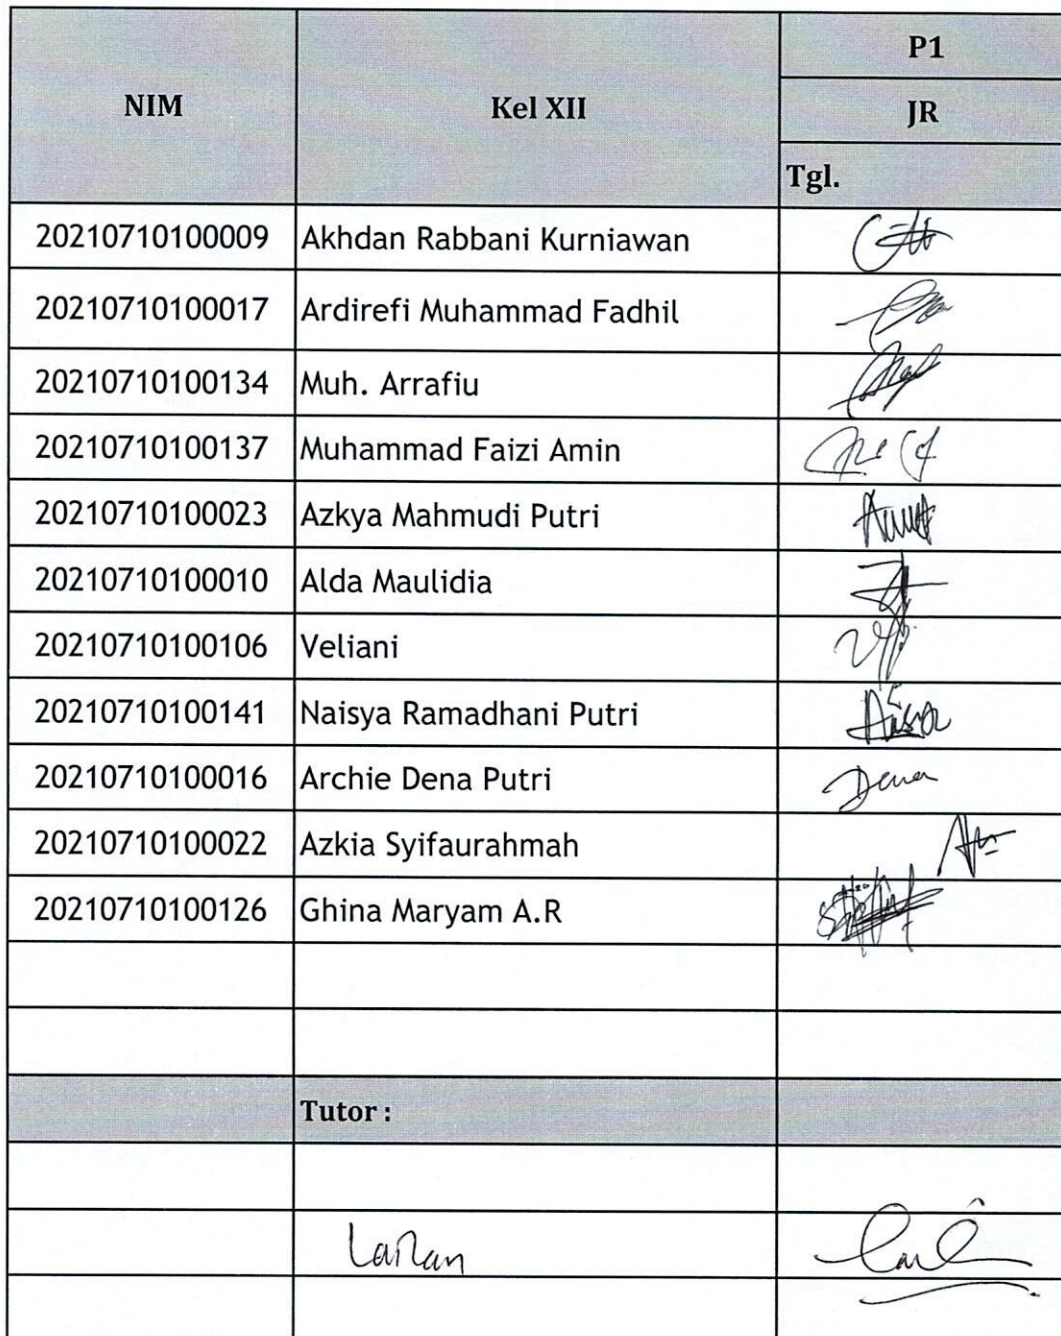 NIM Kel XII P1
JR
Tgl.
20210710100009 Akhdan Rabbani Kurniawan
20210710100017 Ardirefi Muhammad Fadhil
20210710100134 Muh. Arrafiu
20210710100137 Muhammad Faizi Amin
20210710100023 Azkya Mahmudi Putri
20210710100010 Alda Maulidia
20210710100106 Veliani
20210710100141 Naisya Ramadhani Putri
20210710100016 Archie Dena Putri Dena
20210710100022 Azkia Syifaurahmah
20210710100126 Ghina Maryam A.R
Tutor :